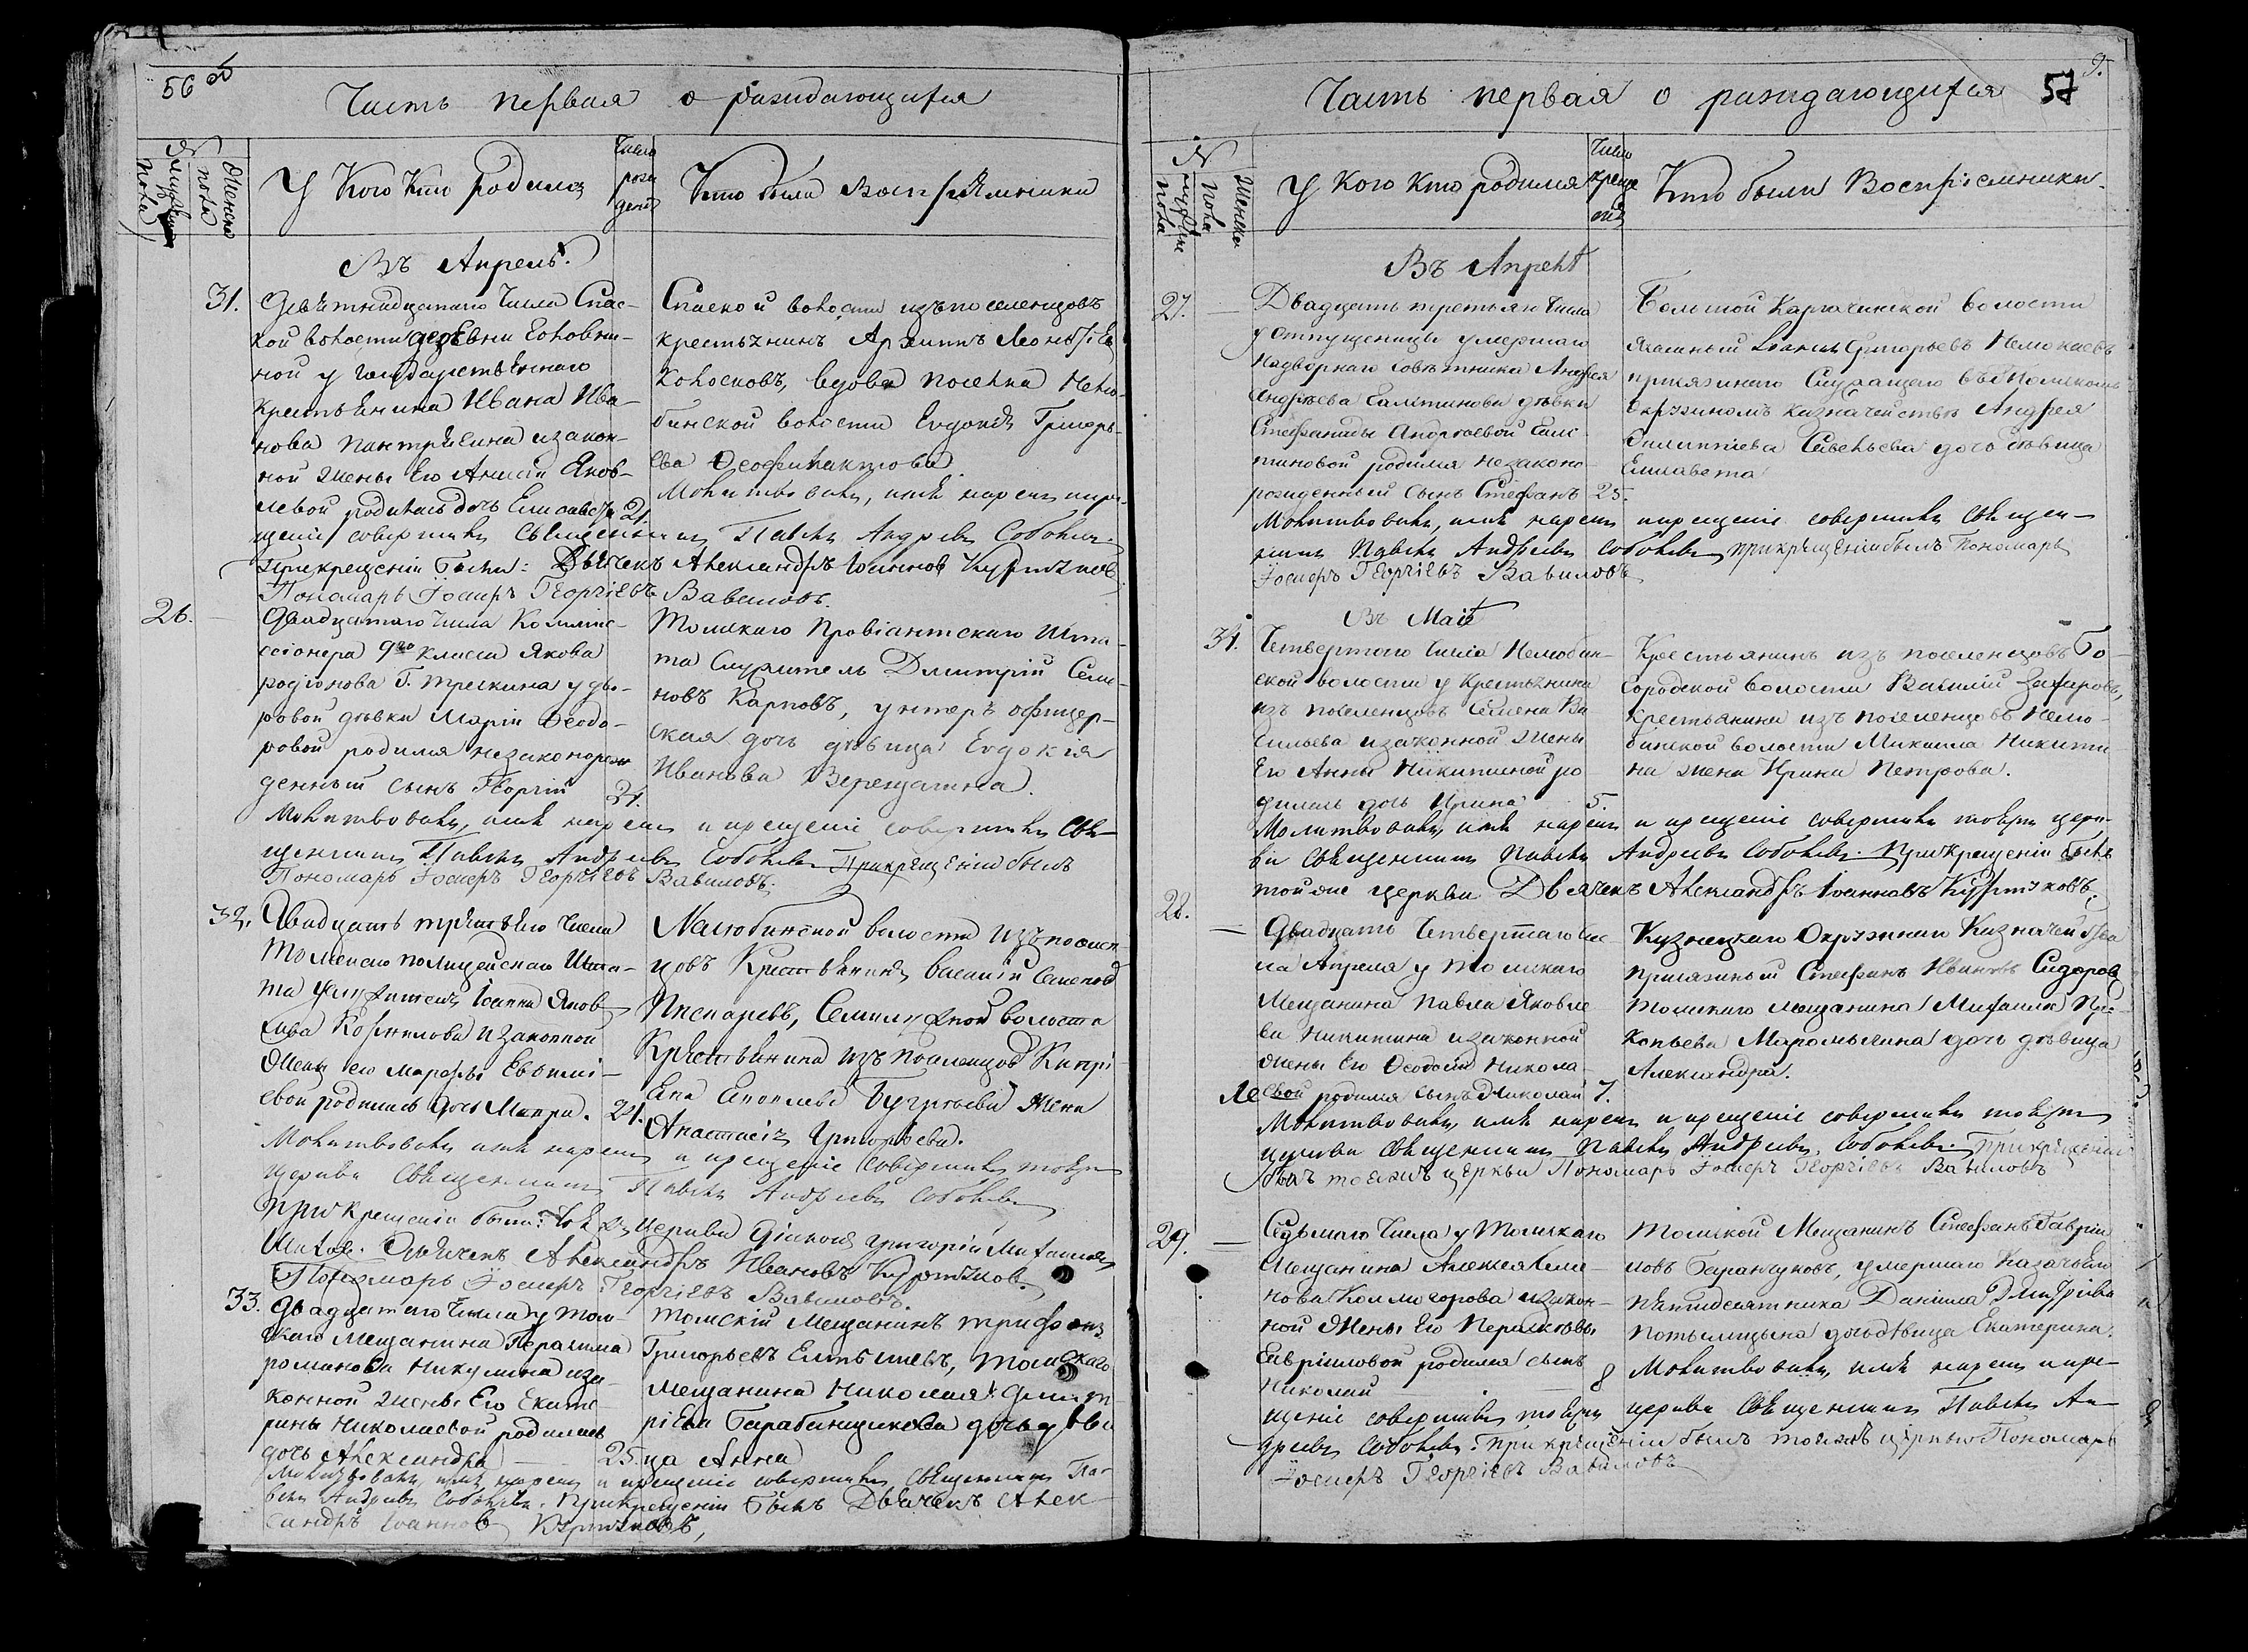 56 об
Часть первая о раждающихся
№
Мужеска пола
Женска пола
У Кого Кто родился
Число рожденія
Кто были Воспріемники
Въ Апрелѣ.
31.
Девѣтнадцатаго Числа Спас-
кой волости деревни Еловни-
ной у государственнаго
Крестьянина Ивана Ива-
нова изакон-
ной жены Его Анисіи Яков-
левой родилась дочь Елисавета 21.
Спаской волости изъ поселенцовъ
крестьянинъ Архиппъ Леонтьевъ
Колосковъ, вдова поселка Нелю-
бинской волости Евдокія Григорь-
ева Феофилактова
Молитвовалъ, имя нарекъ икре-
щеніе совершилъ Священникъ Павелъ Андреевъ Соболевъ.
Прикрещеніи былъ: Дьячекъ Александръ Іоанновъ Куртуковъ
Пономарь Іосифъ Георгіевъ Вавиловъ.
26. —
Двадцатаго Числа Коммис-
сіонера 9го класса Якова
родіонова Г. Трескина у дво-
ровой дѣвки Маріи Феодо-
ровой родился незаконорож
денный сынъ Георгій 21.
Томскаго Провіантскаго Шта-
та Служитель Дмитрій Семе-
новъ Карповъ, унтеръ офицер-
ская дочь дѣвица Евдокія
Иванова Верещагина.
Молитвовалъ, имя нарекъ и крещеніе совершилъ Свя-
щенникъ Павелъ Андреевъ Соболевъ Прикрещеніи былъ
Пономарь Іосифъ Георгіевъ Вавиловъ.
32.
Двадцать третьяго числа
Томскаго полицейскаго Шта-
та Служителя Іоанна Яков
лева Корнилова изаконной
Жены его Марфы Евфимі-
евой родилась дочь Мавра. 24.
Нелюбинской волости изъ посел-
цовъ Крестьянинъ Василій Семеновъ
Писаревъ, Семилужной волости
Крестьянина изъ поселенцовъ Кипрі-
Жена
Анастасія Григорьева.
Молитвовалъ имя нарекъ и крещеніе совершилъ тоежъ
церкви Священникъ Павелъ Андреевъ Соболевъ
при крещеніи были: тояжъ церкви Діаконъ Григорій Михаиловъ
Дьячекъ Александръ Ивановъ Куртуковъ
Пономарь Іосифъ Георгіевъ Вавиловъ.
33.
Двадцатаго Числа у том-
скаго Мещанина Герасима
романова Никулина иза-
конной жены Его Екате-
рины Николаевой родилась
дочь Александра — 25.
Томскій Мещанинъ Трифонъ
Григорьевъ, Томскаго
мещанина Николая Дмит-
ріева Барабанщикова дочь дѣви
ца Анна
Молитвовалъ, имя нарекъ и крещеніе совершилъ Священникъ Па-
велъ Андреевъ Соболевъ. Прикрещеніи былъ Дьячекъ Алек-
сандръ Іоанновъ Куртуковъ,
9.
57
Часть первая о раждающихся
№
Мужеска пола
Женска пола
У кого кто родился
Число крещенія
Кто были Воспріемники.
Въ Апрелѣ
27. —
Двадцать третьяго числа
у отпущеницы умершаго
Надворнаго совѣтника Андрея
Андреева дѣвки
Стефаниды Андреевой
родился незаконо-
рожденный сынъ Стефанъ 25.
Большой Карачинской волости
Іванъ Григорьевъ
присяжнаго Служащего въ Томскомъ
окружномъ казначействѣ Андрея
Савельева дочь дѣвица
Елисавета
Молитвовалъ, имя нарекъ икрещеніе совершилъ Священ-
никъ Павелъ Андреевъ Соболевъ прикрещеніи былъ Пономарь
Іосифъ Георгіевъ Вавиловъ
Въ Маіѣ
34.
Четвертаго Числа Нелюбин-
ской волости у Крестьянина
изъ поселенцовъ Семена Ва-
сильева изаконной жены
Его Анны Никитиной ро-
дилась дочь Ирина 5.
Крестьянинъ изъ поселенцовъ Бо-
городской волости Василій Захаровъ,
Крестьянина изъ поселенцовъ Нелю-
бинской волости Михаила Никити-
на жена Ирина Петрова.
Молитвовалъ имя нарекъ и крещеніе совершилъ тоежъ церк-
ви Священникъ Павелъ Андреевъ Соболевъ. Прикрещеніи былъ
той же церкви Дьячекъ Александръ Іоанновъ Куртуковъ.
28. —
Двадцать Четвертаго чис-
ла Апреля у Томскаго
Мещанина Павла Яковле
ва Никитина изаконной
жены Его Феодосіи Никола
евой родился сынъ Николай 7.
Кузнецкаго Окружнаго Казначейства
присяжный Стефанъ Ивановъ Сидоровъ
Томскаго мещанина Михаила Про-
копьева дочь дѣвица
Александра.
Молитвовалъ, имя нарекъ и крещеніе совершилъ тоежъ
церкви Священникъ Павелъ Андреевъ Соболевъ. Прикрещеніи
былъ тоежъ церкви Пономарь Іосифъ Георгіевъ Вавиловъ
29. —
Седьмаго Числа у Томскаго
Мещанина Алексея Семе-
нова Колмогорова изакон-
ной Жены Его Перасковьи
Гавриловой родился сынъ
Николай — 8
Томской Мещанинъ Стефанъ Гаврии
ловъ Баранчуковъ, умершаго Казачьяго
пятидесятника Даниила Дмитріева
дочь дѣвица Екатерина.
Молитвовалъ, имя нарекъ икре-
щеніе совершилъ тоежъ церкви Священникъ Павелъ Ан-
дреевъ Соболевъ. При крещеніи былъ тоежъ церкви Пономарь
Іосифъ Георгіевъ Вавиловъ